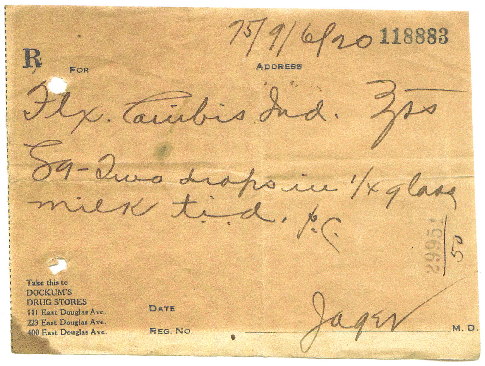 75/9/6/20 118883
R
FOR ADDRESS
Flx. Cannibis Ind. ℥ss
Sg-Two drops in 1/4 glass
milk t.i.d. p.c.
29951
50
Take this to
DOCKUM'S
DRUG STORES
111 East Douglas Ave.
223 East Douglas Ave.
400 East Douglas Ave.
DATE
REG. No
Jager M. D.